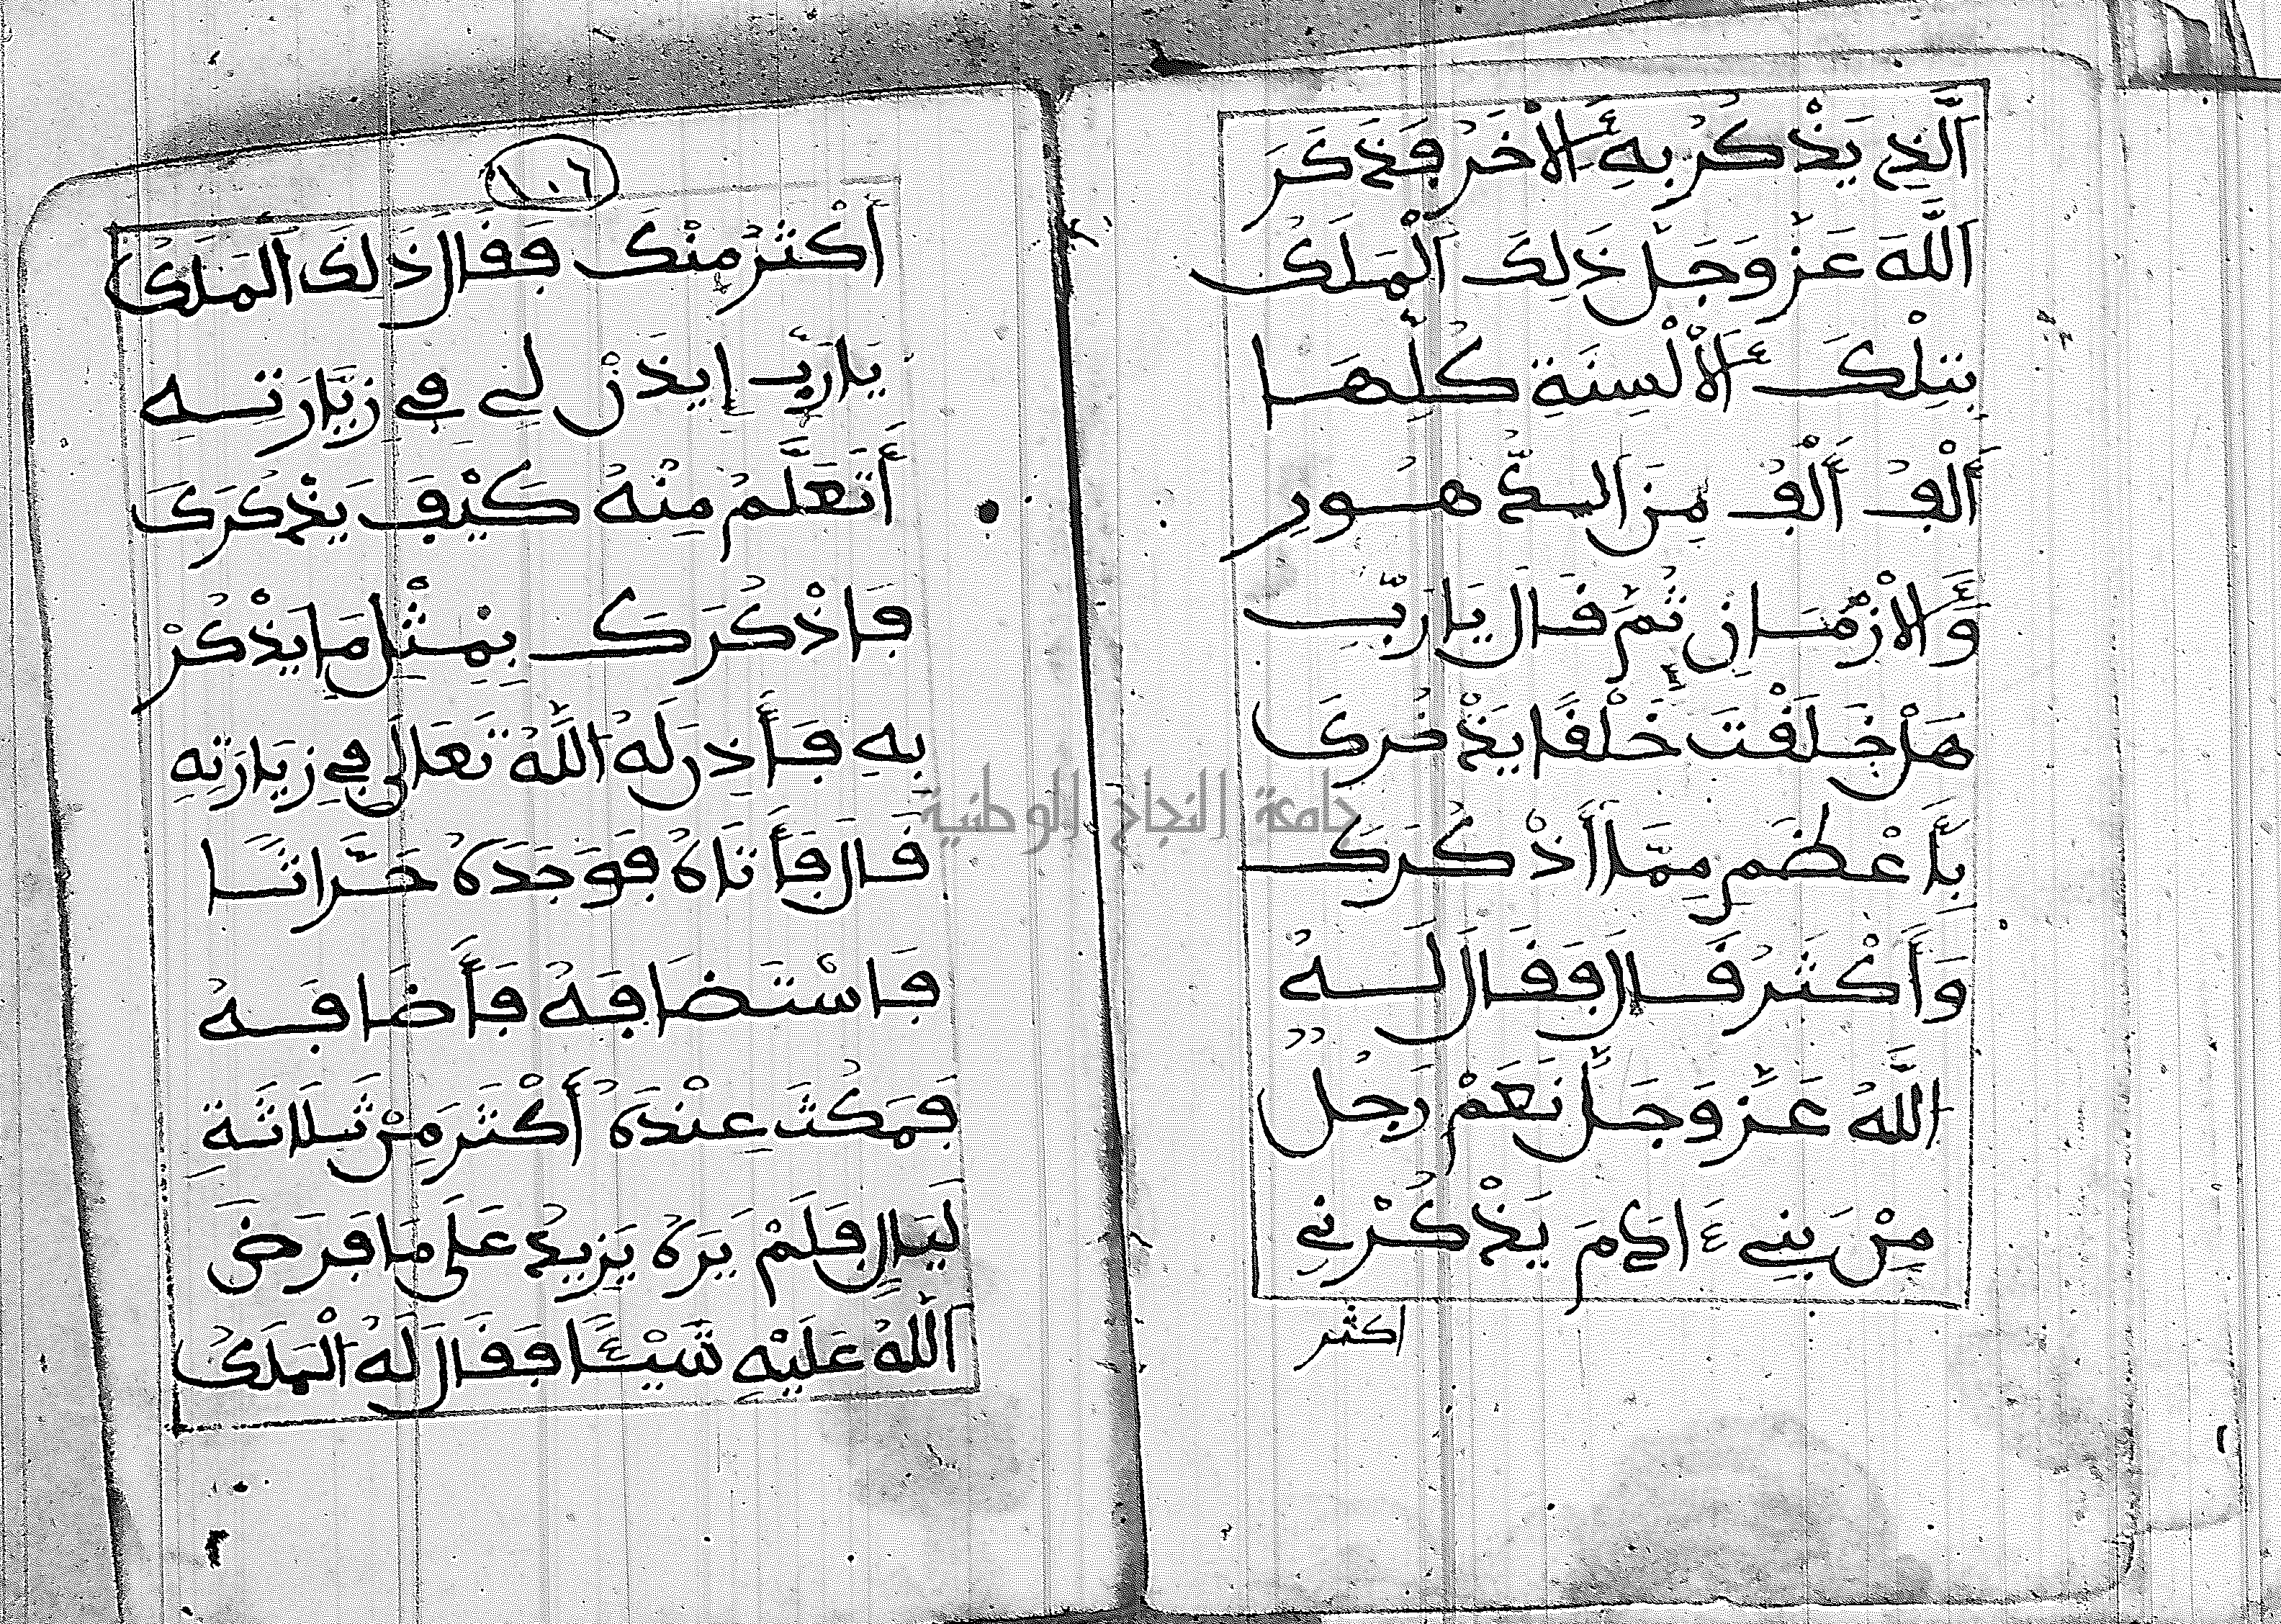 اَلَّذِي يَذْكُرُ بِهِ اَلْأَخَرُ فَذَكَرَ
اَللَّهَ عَزَّ وَجَلَّ ذَلِكَ اَلْمَلَكُ
بِتِلْكَ اَلْأَلْسِنَةِ كُلِّهَا
أَلْفَ أَلْفٍ مِنَ الدُّهُورِ
وَالْأَزْمَانِ ثُمَّ قَالَ يَا رَبِّ
هَلْ خَلَقْتَ خَلْقًا يَذْكُرُكَ
بِأَعْظَمِ مِمَّا أَذْكُرُكَ
وَأَكْثَرُ قَالَ فَقَالَ لَهُ
اَللَّهُ عَزَّ وَجَلَّ نَعَمْ رَجُلٌ
مِنْ بَنِي ءَادَمَ يَذْكُرُنِي
اكثر
١٠٦
أَكْثَرُ مِنْكَ فَقَالَ ذَلِكَ اَلْمَلَكُ
يَا رَبِّ إِيذَنْ لِي فِي زِيَّارَتِهِ
أَتَعَلَّمُ مِنْهُ كَيْفَ يَذْكُرُكَ
فَاذْكُرَكَ بِمِثْلِ مَا يَذْكُرُ
بِهِ فَأَذِنَ لَهُ اَللَّهُ تَعَالَى فِي زِيَارَتِهِ
قَالَ فَأَتَاهُ فَوَجَدَهُ حَرَّاثًا
فَاسْتَضَافَهُ فَأَضَافَهُ
فَمَكُثَ عِنْدَهُ أَكْثَرَ مِنْ ثَلَاثَةِ
لَيَالٍ فَلَمْ يَرَهُ يَزِيدُ عَلَى مَا فَرَضَ
اَللَّهُ عَلَيْهِ شَيْئًا فَقَالَ لَهُ اَلْمَلَكُ
جامعة النجاح الوطنية